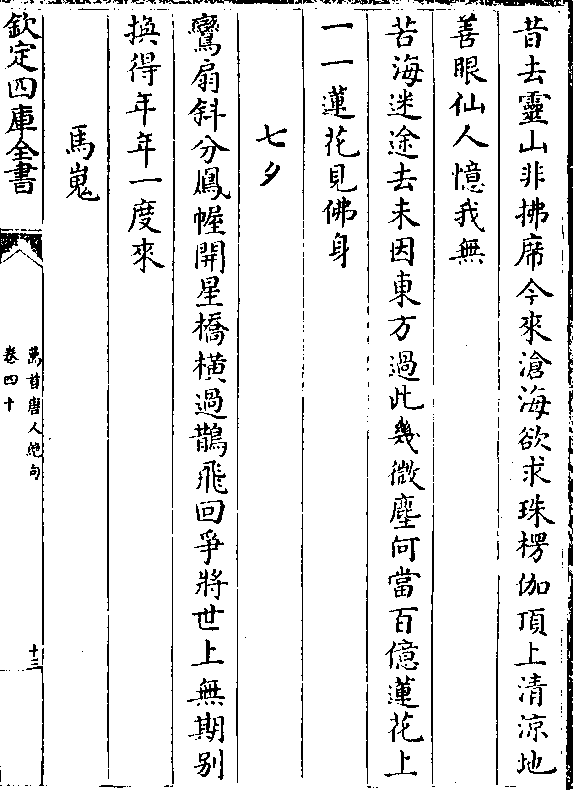 昔去靈山非拂席今來滄海欲求珠楞伽頂上清涼地
善眼仙人憶我無
苦海迷途去未因東方過此幾微塵何當百億蓮花上
一一蓮花見佛身
七夕
鸞扇斜分鳳幄開星橋橫過鵲飛回爭將世上無期别
換得年年一度來
馬嵬
欽定四庫全書
萬首唐人絶句
卷四十
十三